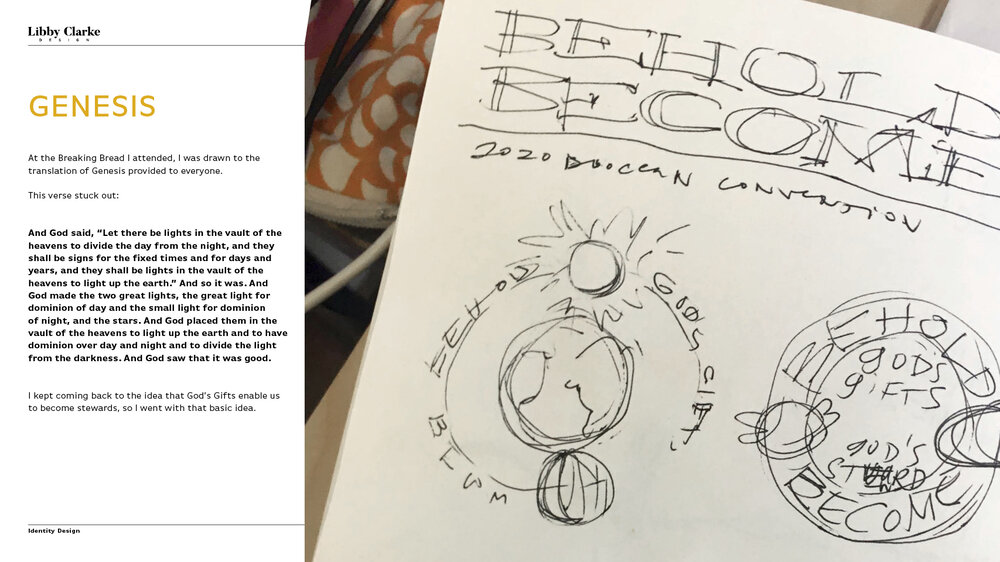 Libby Clarke
DESIGN
GENESIS
At the Breaking Bread I attended, I was drawn to the
translation of Genesis provided to everyone.
This verse stuck out:
And God said, “Let there be lights in the vault of the
heavens to divide the day from the night, and they
shall be signs for the fixed times and for days and
years, and they shall be lights in the vault of the
heavens to light up the earth.” And so it was. And
God made the two great lights, the great light for
dominion of day and the small light for dominion
of night, and the stars. And God placed them in the
vault of the heavens to light up the earth and to have
dominion over day and night and to divide the light
from the darkness. And God saw that it was good.
I kept coming back to the idea that God’s Gifts enable us
to become stewards, so I went with that basic idea.
Identity Design
BEHOLD
BECOME
2020 CONVENTION
BEHOLD
GODS
BEHOLD
GODS
GIFTS
GOD'S
BECOME